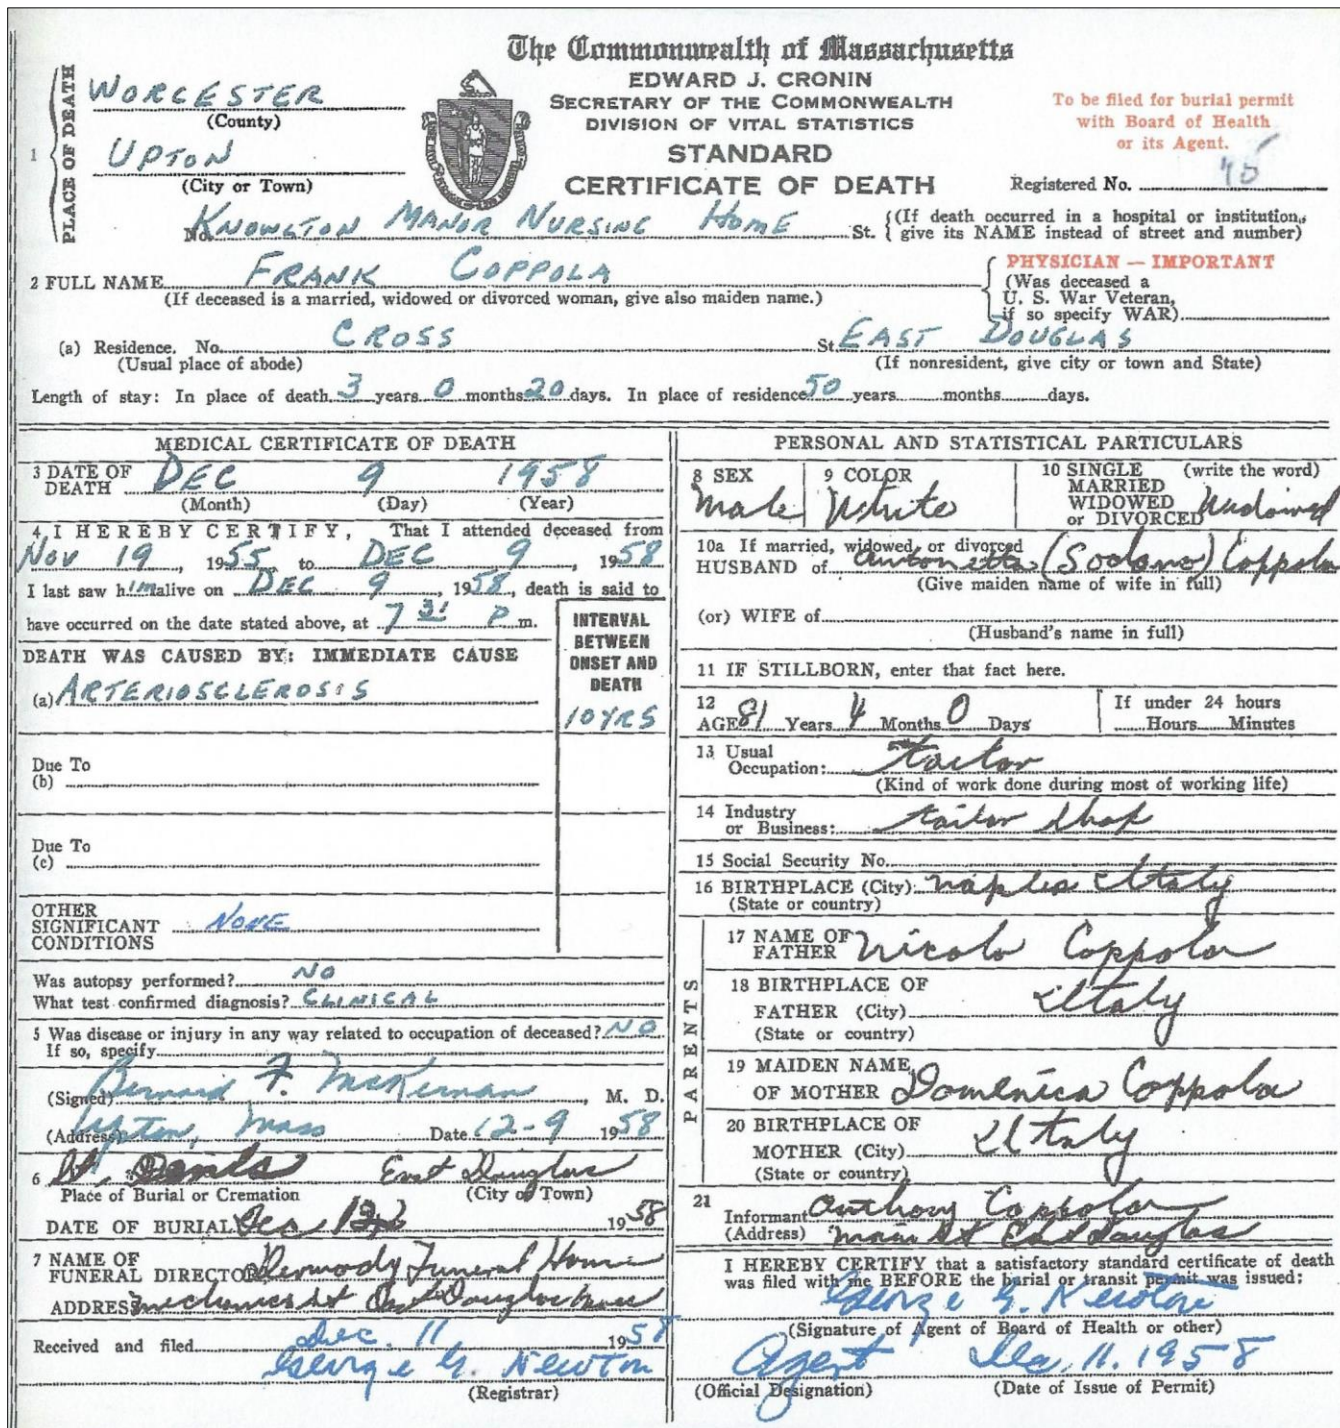 The Commonwealth of Massachusetts
EDWARD J. CRONIN
SECRETARY OF THE COMMONWEALTH
DIVISION OF VITAL STATISTICS
STANDARD
CERTIFICATE OF DEATH
To be filed for burial permit
with Board of Health
or its Agent.
Registered No.
1 PLACE OF DEATH
WORCESTER
(County)
UPTON
(City or Town)
No. KNOWLTON MANOR NURSING HOME St. {(If death occurred in a hospital or institution, give its NAME instead of street and number)
2 FULL NAME FRANK COPPOLA
(If deceased is a married, widowed or divorced woman, give also maiden name.)
PHYSICIAN — IMPORTANT
(Was deceased a
U. S. War Veteran,
if so specify WAR)
(a) Residence. No. CROSS St. EAST DOUGLAS
(Usual place of abode) (If nonresident, give city or town and State)
Length of stay: In place of death 3 years 0 months 20 days. In place of residence 50 years months days.
MEDICAL CERTIFICATE OF DEATH
3 DATE OF DEATH DEC 9 1958
(Month) (Day) (Year)
4 I HEREBY CERTIFY, That I attended deceased from
NOV 19, 1955 to DEC 9, 1958
I last saw him alive on DEC 9, 1958, death is said to
have occurred on the date stated above, at 7 31 P m.
INTERVAL
BETWEEN
ONSET AND
DEATH
DEATH WAS CAUSED BY: IMMEDIATE CAUSE
(a) ARTERIOSCLEROSIS 10 YRS
Due To
(b)
Due To
(c)
OTHER
SIGNIFICANT NONE
CONDITIONS
Was autopsy performed? NO
What test confirmed diagnosis? CLINICAL
5 Was disease or injury in any way related to occupation of deceased? NO
If so, specify
(Signed) Bernard F. McKernan, M. D.
(Address) Upton, Mass Date 12-9 1958
6 St. Denis East Douglas
Place of Burial or Cremation (City or Town)
DATE OF BURIAL Dec 1958
7 NAME OF
FUNERAL DIRECTOR Dermody Funeral Home
ADDRESS Mechanics St East Douglas Mass
Received and filed Dec. 11 1958
George G. Newton
(Registrar)
PERSONAL AND STATISTICAL PARTICULARS
8 SEX 9 COLOR 10 SINGLE (write the word)
MARRIED
WIDOWED
or DIVORCED
Male White Widowed
10a If married, widowed, or divorced
HUSBAND of Antonetta (Sodano) Coppola
(Give maiden name of wife in full)
(or) WIFE of
(Husband's name in full)
11 IF STILLBORN, enter that fact here.
12 If under 24 hours
AGE 81 Years 4 Months 0 Days Hours Minutes
13 Usual
Occupation: Tailor
(Kind of work done during most of working life)
14 Industry
or Business: tailor shop
15 Social Security No.
16 BIRTHPLACE (City) Naples Italy
(State or country)
PARENTS
17 NAME OF
FATHER Nicola Coppola
18 BIRTHPLACE OF
FATHER (City) Italy
(State or country)
19 MAIDEN NAME
OF MOTHER Domenica Coppola
20 BIRTHPLACE OF
MOTHER (City) Italy
(State or country)
21
Informant Anthony Coppola
(Address) Main St East Douglas
I HEREBY CERTIFY that a satisfactory standard certificate of death
was filed with me BEFORE the burial or transit permit was issued:
George G. Newton
(Signature of Agent of Board of Health or other)
Agent Dec. 11. 1958
(Official Designation) (Date of Issue of Permit)